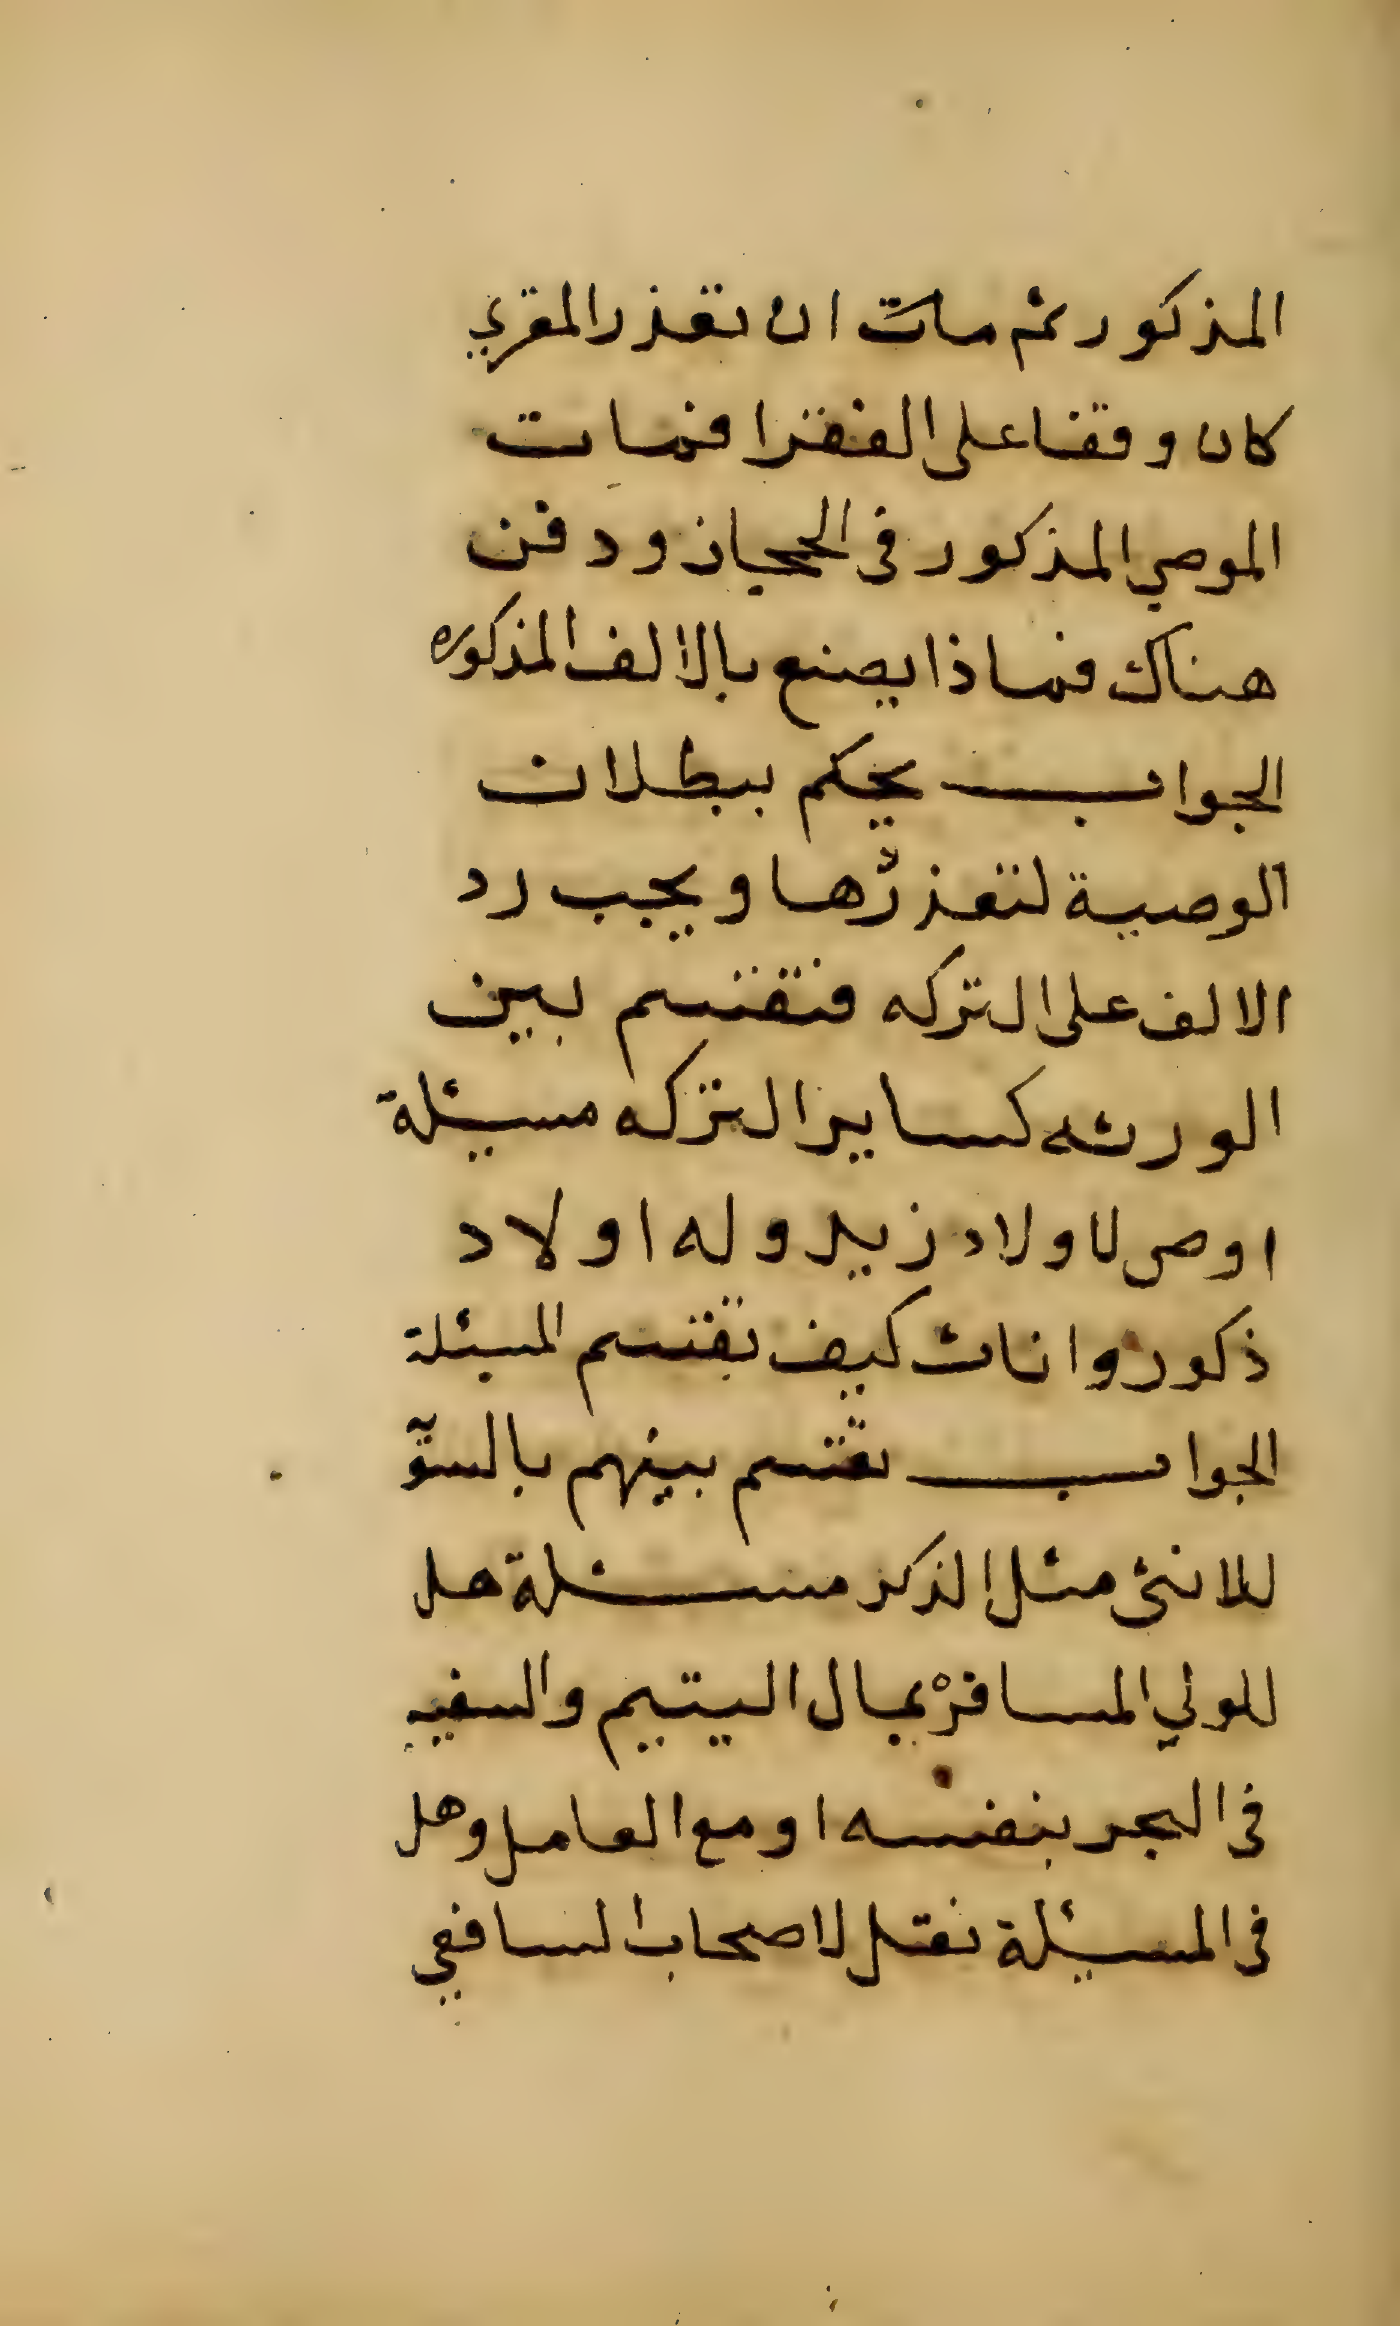 المذكور ثم مات ان تعذر المقري
كان وقفا على الفقرا فمات
الموصي المذكور في الحجاز ودفن
هناك فماذا يصنع بالالف المذكوره
الجواب يحكم ببطلان
الوصية لتعذرها ويجب رد
الالف على التركه فتقتسم بين
الورثه كساير التركه مسيئلة
اوصى لاولاد زيد وله اولاد
ذكور واناث كيف تقتسم المسيئلة
الجواب تقتسم بينهم بالسوية
للانثى مثل الذكر مسئلة هل
للولي المسافرة بمال اليتيم والسفيه
في البحر بنفسه او مع العامل وهل
في المسيئلة نقل لاصحاب الشافعي